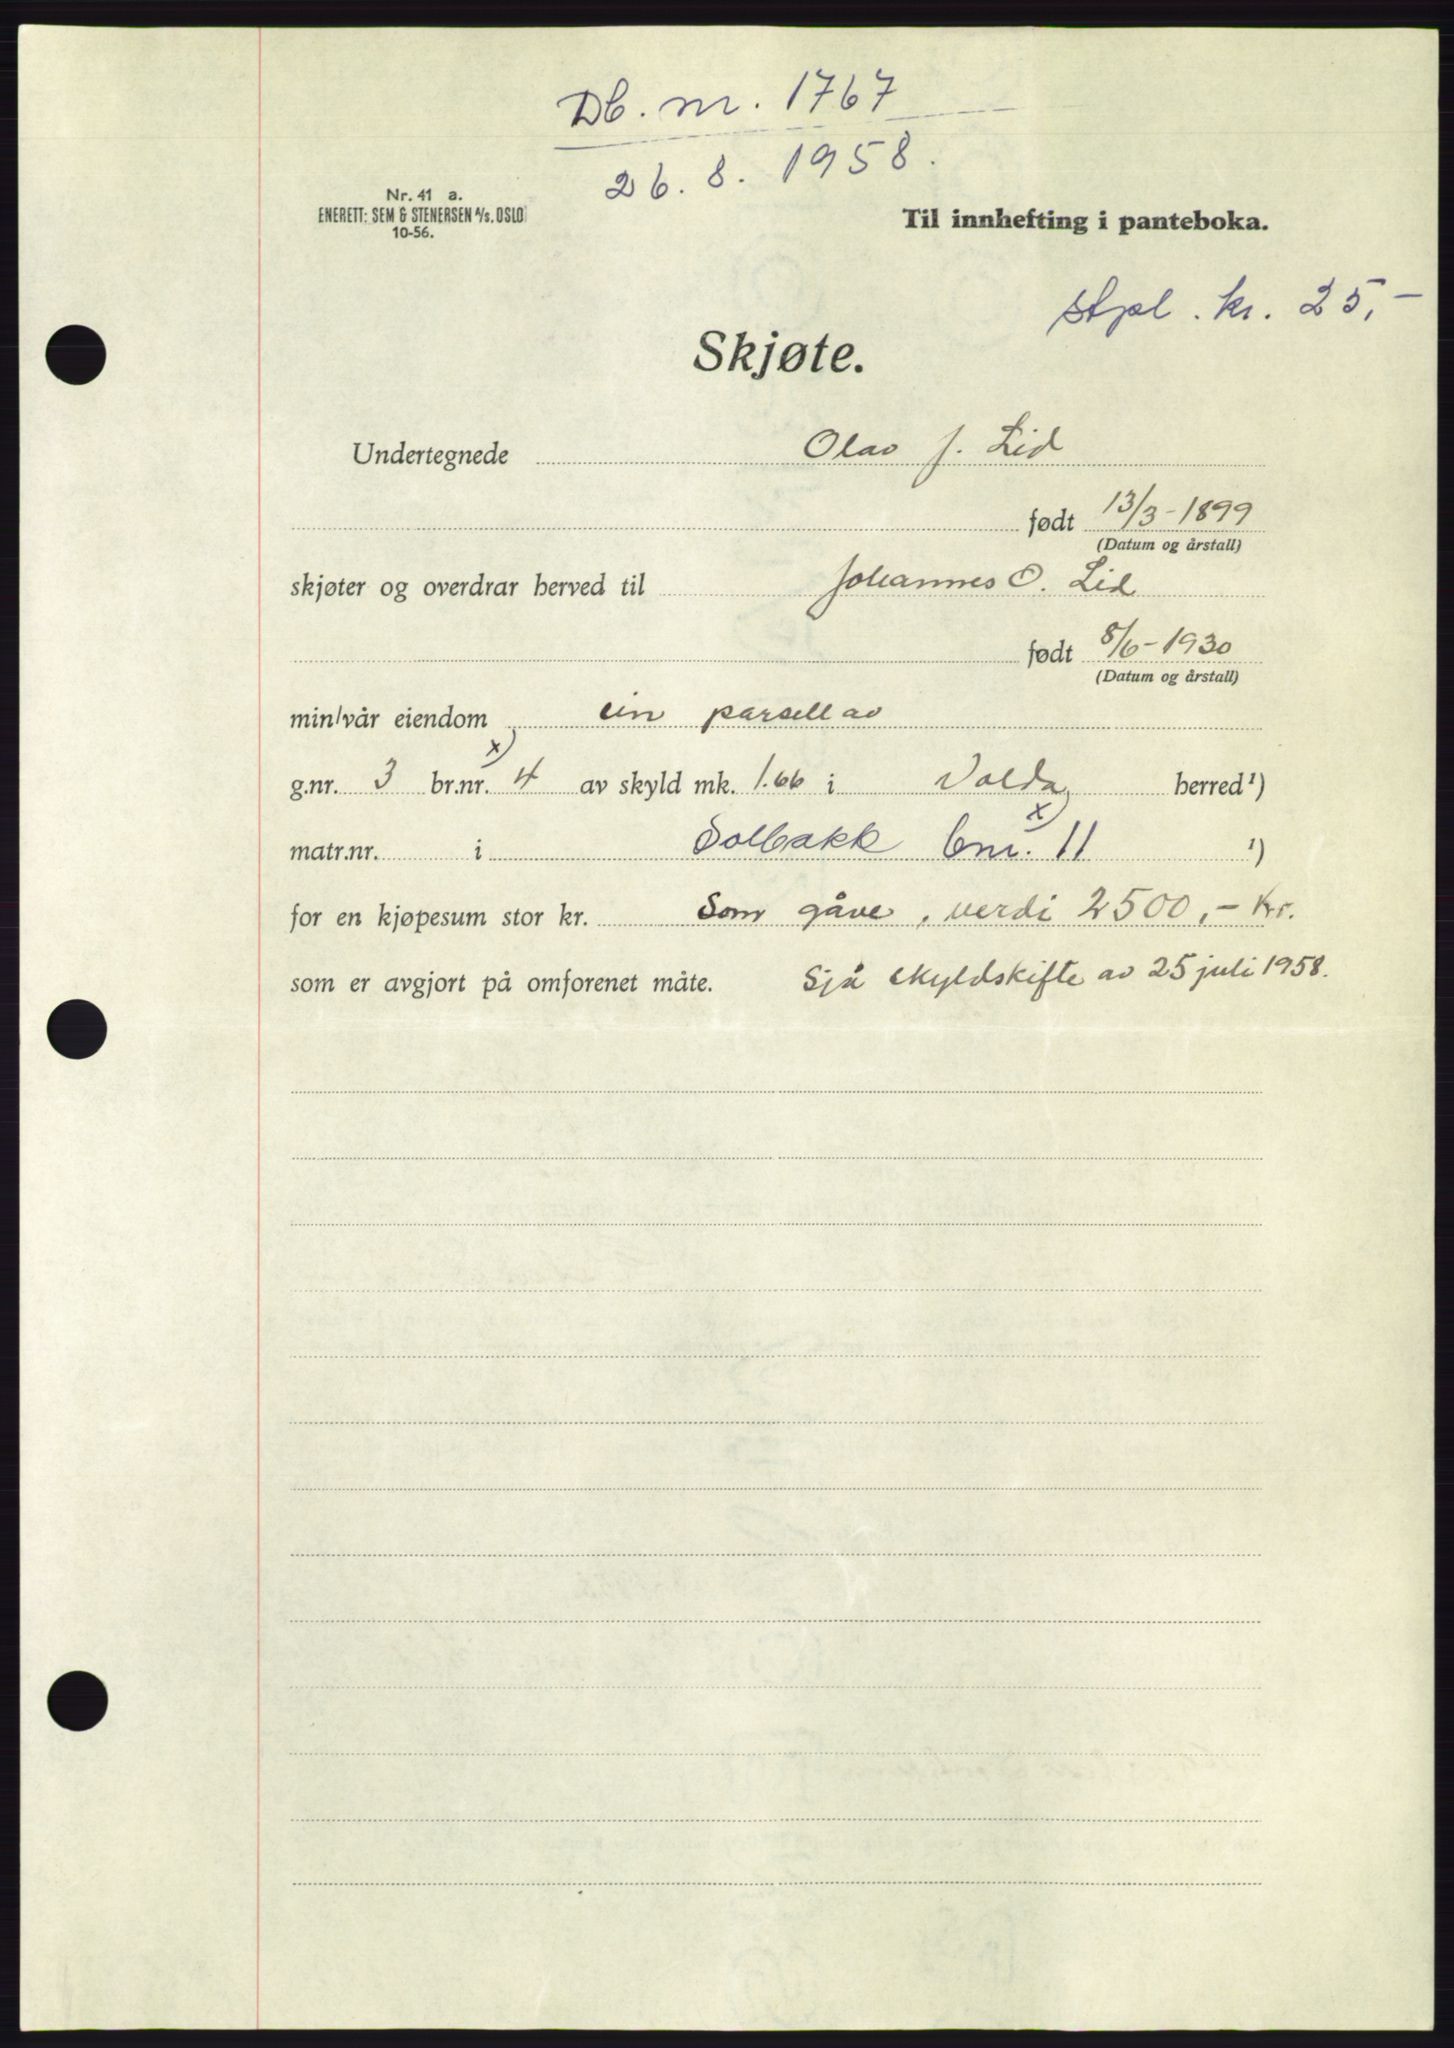 Db. nr. 1767
26. 8. 1958.
Nr. 41 a.
ENERETT: SEM & STENERSEN A/S. OSLO
10-56.
Til innhefting i panteboka.
Stpl. kr. 25,-
Skjøte.
Undertegnede Olav J. Lid
født 13/3-1899
(Datum og årstall)
skjøter og overdrar herved til Johannes O. Lid
født 8/6-1930
(Datum og årstall)
min/vår eiendom ein parsell av
g.nr. 3 br.nr. x) 4 av skyld mk. 1.66 i Volda herred¹)
matr.nr. i Solbakk bnr. x) 11 ¹)
for en kjøpesum stor kr. Som gåve, verdi 2500,- Kr.
som er avgjort på omforenet måte. Sjå skyldskifte av 25 juli 1958.